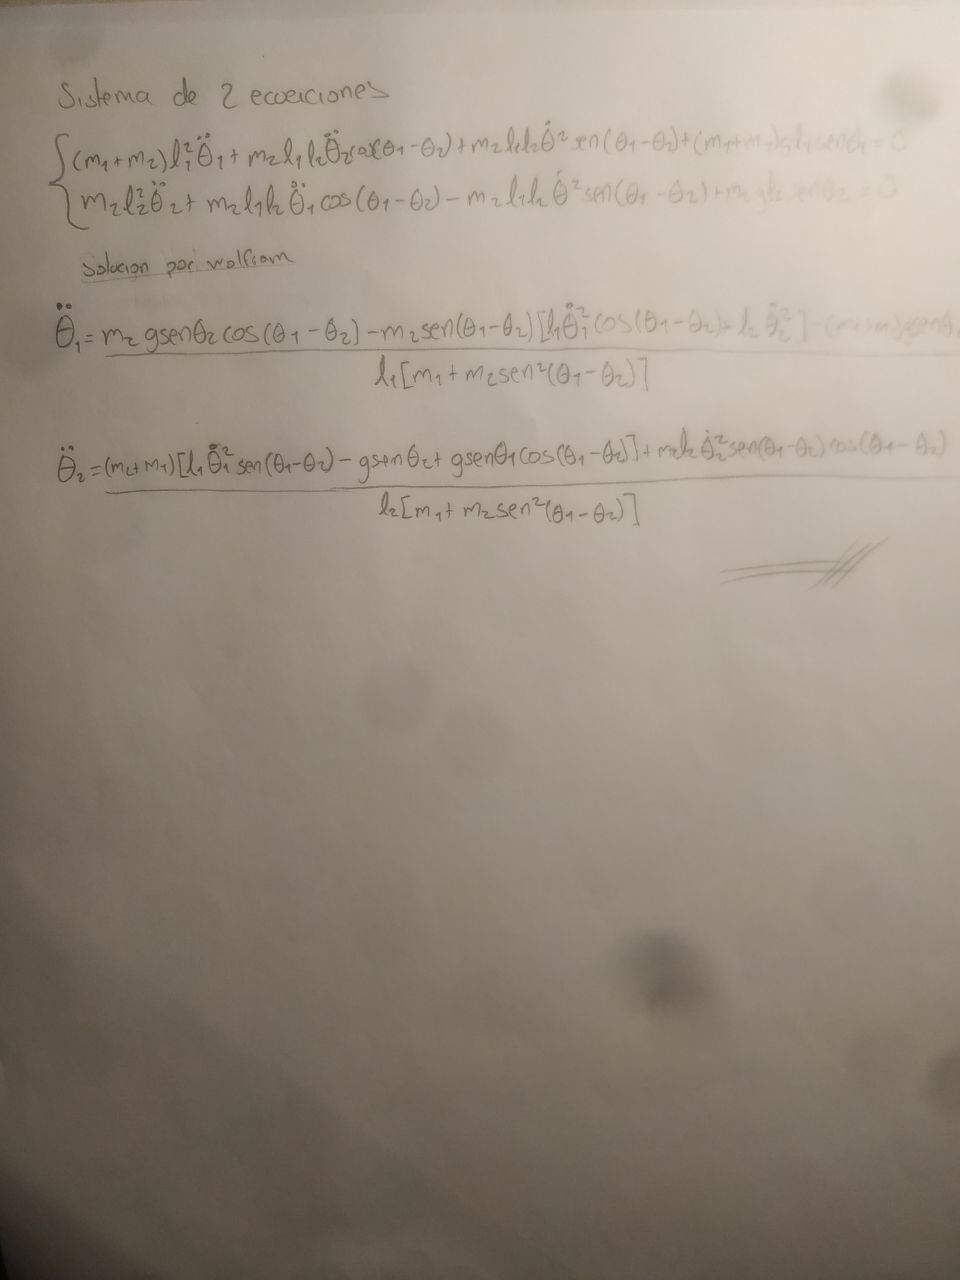 Sistema de 2 ecuaciones
(m₁+m₂)l₁²θ̈₁ + m₂l₁l₂θ̈₂cos(θ₁-θ₂) + m₂l₁l₂θ̇² sen(θ₁-θ₂) + (m₁+m₂)gl₁senθ₁ = 0
m₂l₂²θ̈₂ + m₂l₁l₂θ̈₁cos(θ₁-θ₂) - m₂l₁l₂θ̇²sen(θ₁-θ₂) + m₂gl₂senθ₂ = 0
Solucion por wolfram
θ̈₁ = m₂ gsenθ₂cos(θ₁-θ₂) - m₂sen(θ₁-θ₂)[l₁θ̇₁²cos(θ₁-θ₂) + l₂θ̇₂²] - (m₁+m₂)gsenθ₁
l₁[m₁+m₂sen²(θ₁-θ₂)]
θ̈₂ = (m₂+m₁)[l₁θ̇₁²sen(θ₁-θ₂) - gsenθ₂ + gsenθ₁cos(θ₁-θ₂)] + m₂l₂θ̇₂²sen(θ₁-θ₂)cos(θ₁-θ₂)
l₂[m₁+m₂sen²(θ₁-θ₂)]